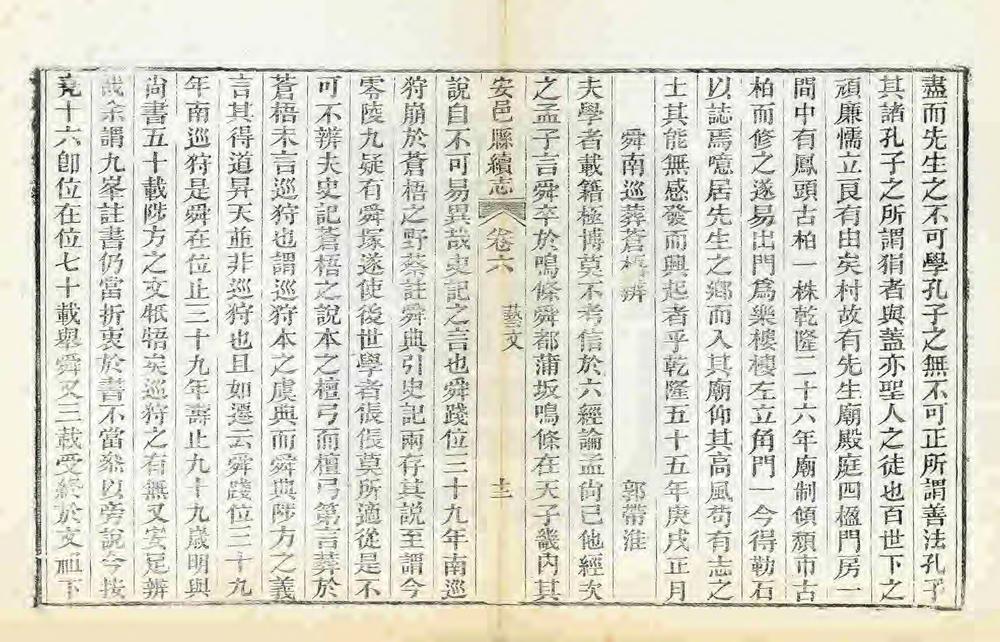 盡而先生之不可學孔子之無不可正所謂善法孔子
其諸孔子之所謂狷者與蓋亦聖人之徒也百世下之
頑廉懦立良有由矣村故有先生廟殿庭四楹門房一
間中有鳳頭古柏一株乾隆二十六年廟制傾頹市古
柏而修之遂易出門為樂樓樓左立角門一今得勒石
以誌焉噫居先生之鄉而入其廟仰其高風苟有志之
士其能無感發而興起者乎乾隆五十五年庚戌正月
舜南巡葬蒼梧辨 郭帶淮
夫學者載籍極博莫不考信於六經論孟尚已他經次
之孟子言舜卒於鳴條舜都蒲坂鳴條在天子畿內其
安邑縣續志 卷六 藝文 十三
說自不可易異哉史記之言也舜踐位三十九年南巡
狩崩於蒼梧之野蔡註舜典引史記兩存其說至謂今
零陵九疑有舜塚遂使後世學者倀倀莫所適從是不
可不辨夫史記蒼梧之說本之檀弓而檀弓第言葬於
蒼梧未言巡狩也謂巡狩本之虞典而舜典陟方之義
言其得道昇天並非巡狩也且如遷云舜踐位三十九
年南巡狩是舜在位止三十九年壽止九十九歲明與
尚書五十載陟方之文牴牾矣巡狩之有無又安足辨
哉余謂九峯註書仍當折衷於書不當叅以旁說今按
堯十六卽位在位七十載舉舜又三載受終於文祖下